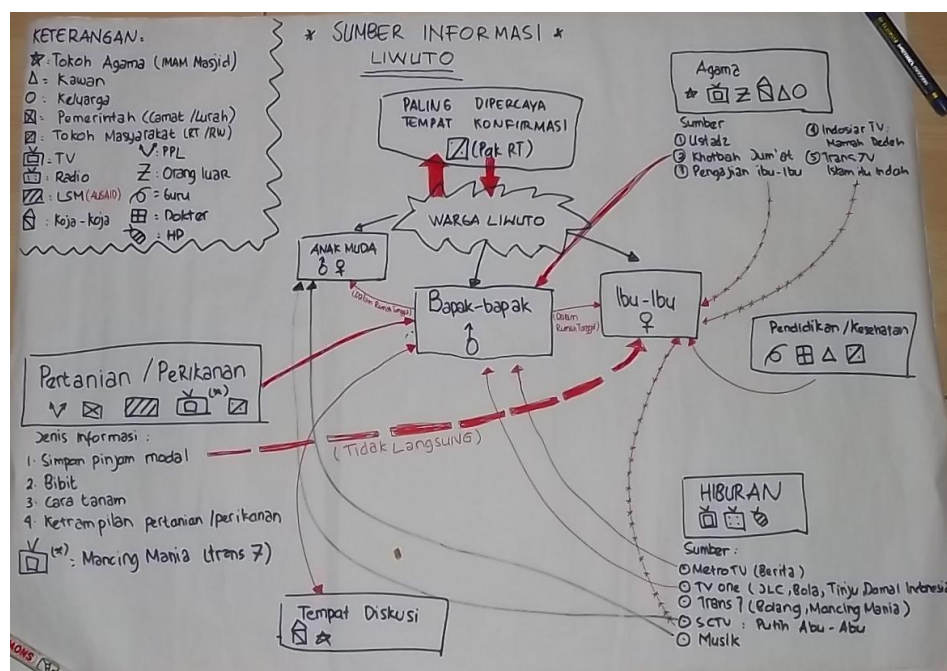 KETERANGAN:
: Tokoh Agama (IMAM Masjid)
= Kawan
: Keluarga
= Pemerintah (Camat/Lurah)
: Tokoh Masyarakat (RT/RW)
= TV
: PPL
: Radio
Z : Orang luar
: LSM (AUSAID)
= Guru
: Koja-koja
= Dokter
: HP
* SUMBER INFORMASI *
LIWUTO
PALING DIPERCAYA
TEMPAT KONFIRMASI
(Pak RT)
WARGA LIWUTO
ANAK MUDA
Bapak-bapak
Ibu-Ibu
(Dalam Rumah Tangga)
(Dalam
Rumah Tangga)
Agama
Z
Sumber
① Ustadz
② Khotbah Jum'at
③ Pengajian ibu-Ibu
④ Indosiar TV:
Mamah Dedeh
⑤ Trans TV
Islam itu Indah
Pendidikan/Kesehatan
Pertanian / Perikanan
(*)
Jenis Informasi :
1. Simpan pinjam modal
2. Bibit
3. Cara tanam
4. Ketrampilan pertanian/perikanan
(*) = Mancing Mania (trans 7)
(Tidak LangsUNG)
HIBURAN
Sumber :
MetroTV (Berita)
TV one (JLC, Bola, Tinju, Damai Indonesia
Trans 7 (Bolang, Mancing Mania)
SCTV : Putih Abu-Abu
Musik
Tempat Diskusi